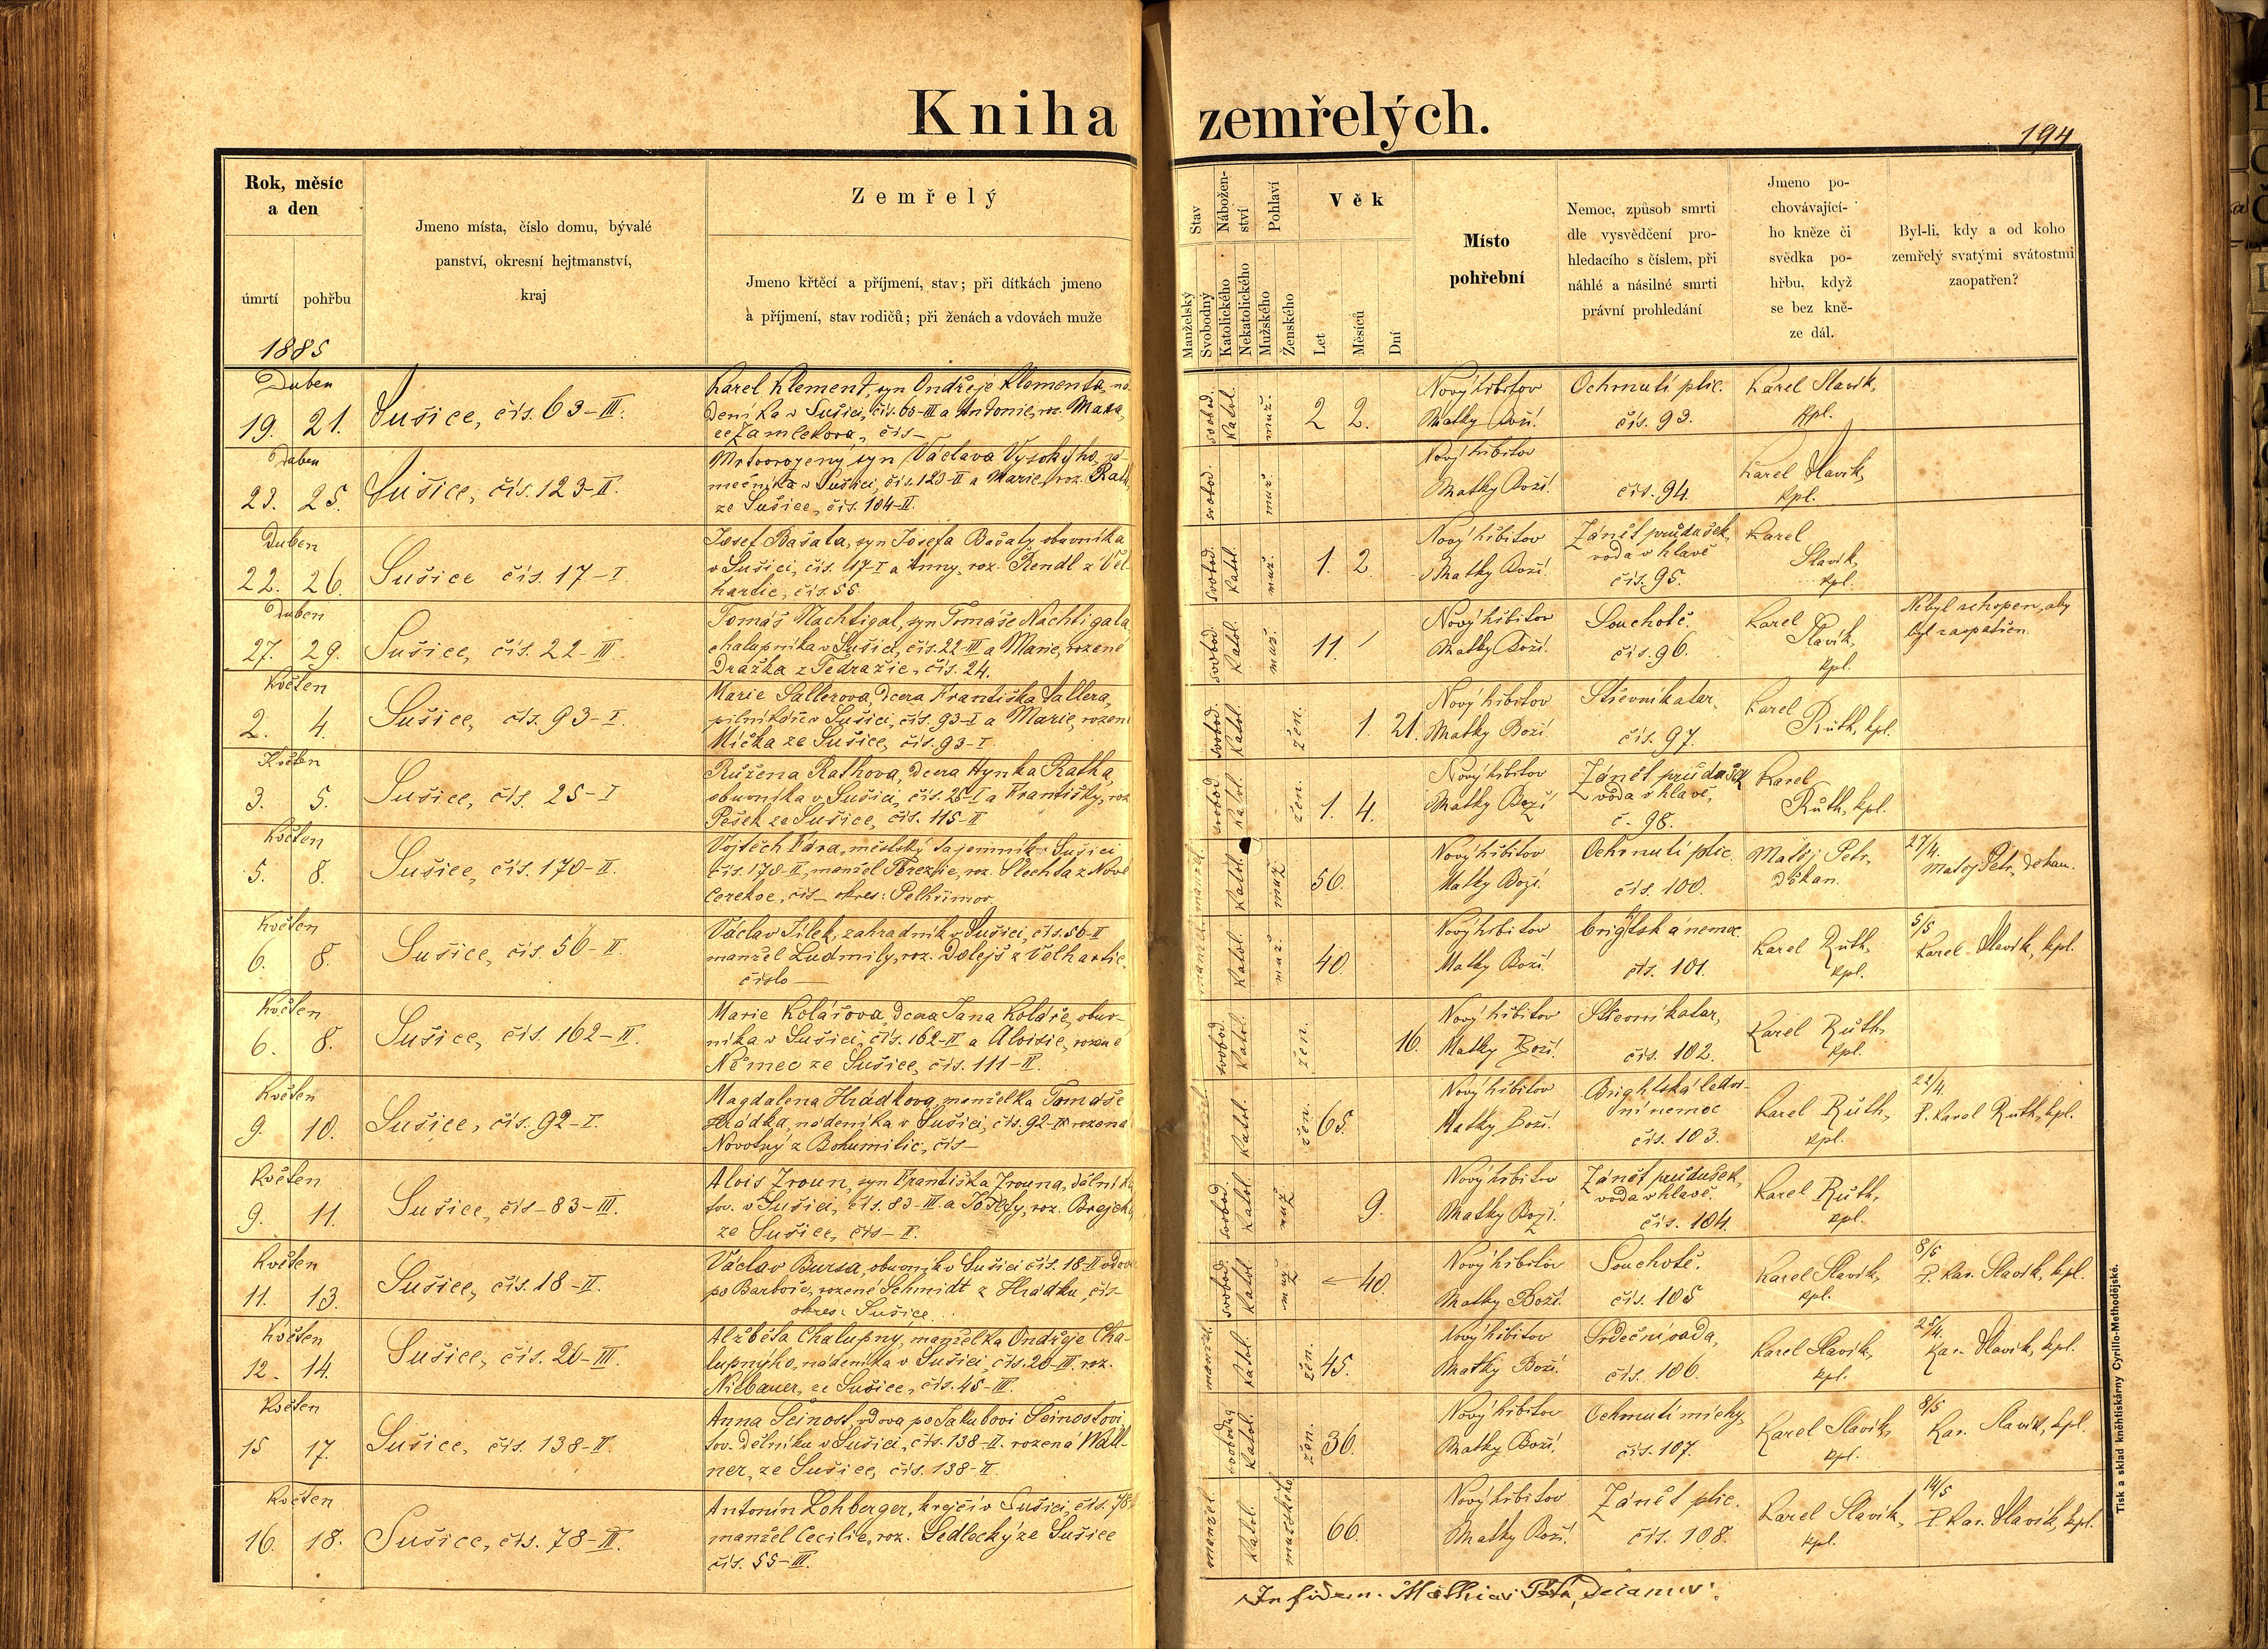 Kniha zemřelých.
194
Rok, měsíc
a den
úmrtí
pohřbu
1885
Jmeno místa, číslo domu, bývalé
panství, okresní hejtmanství,
kraj
Zemřelý
Jmeno křtěcí a příjmení, stav; při dítkách jmeno
a příjmení, stav rodičů; při ženách a vdovách muže
Stav
Manželský
Svobodný
Nábožen-
ství
Katolického
Nekatolického
Pohlaví
Mužského
Ženského
Věk
Let
Měsíců
Dní
Místo
pohřební
Nemoc, způsob smrti
dle vysvědčení pro-
hledacího s číslem, při
náhlé a násilné smrti
právní prohledání
Jmeno po-
chovávající-
ho kněze či
svědka po-
hřbu, když
se bez kně-
ze dál.
Byl-li, kdy a od koho
zemřelý svatými svátostmi
zaopatřen?
Duben
19. 21.
Sušice, čís. 63-III.
Karel Klement, syn Ondřeje Klementa, ná-
deníka v Sušici, čís. 63-III a Antonie, roz.
čís-
svobod. Katol. muž. 2 2.
Nový hřbitov
Matky Boží.
Ochrnutí plic.
čís. 93.
Karel Slavík,
kpl.
Duben
23. 25.
Sušice, čís. 123-II.
Mrtvorozený syn Václava Vysokýho, zá-
mečníka v Sušici, čís. 123-II a Marie, roz.
ze Sušice, čís. 104-II.
svobod. muž.
Nový hřbitov
Matky Boží.
čís. 94.
Karel Slavík,
kpl.
Duben
22. 26.
Sušice čís. 17-I
Josef Bašata, syn Josefa Bašaty obuvníka
v Sušici, čís. 17-I a Anny, roz. Rendl z Vel-
hartic, čís. 55
svobod. Katol. muž. 1. 2.
Nový hřbitov
Matky Boží.
Zánět průdušek,
voda v hlavě
čís. 95.
Karel
Slavík,
kpl.
Duben
27. 29.
Sušice, čís. 22-III.
Tomáš Nachtigal, syn Tomáše Nachtigala
chalupníka v Sušici, čís. 22-III a Marie, rozené
Dražka z Tedražic, čís. 24.
svobod. Katol. muž. 11.
Nový hřbitov
Matky Boží.
Souchotě.
čís. 96.
Karel
Slavík,
kpl.
Nebyl schopen, aby
byl zaopatřen.
Květen
2. 4.
Sušice, čís. 93-I.
Marie Sallerova, dcera Františka Sallera,
pilníkáře v Sušici, čís. 93-I a Marie, rozené
Mička ze Sušice, čís. 93-I.
svobod. Katol. žen. 1. 21.
Nový hřbitov
Matky Boží.
Střevní katar,
čís. 97.
Karel
Růth, kpl.
Květen
3. 5.
Sušice, čís. 25-I
Růžena Rathova, dcera Hynka Ratha,
obuvníka v Sušici, čís. 25-I a Františky, roz.
Pešek ze Sušice, čís. 115-II
svobod. Katol. žen. 1. 4.
Nový hřbitov
Matky Boží
Zánět průdušek
voda v hlavě,
č. 98.
Karel
Růth, kpl.
Květen
5. 8.
Sušice, čís. 170-II.
Vojtěch Fára, městský tajemník v Sušici
čís. 170-II, manžel Terezie, roz. Šlechta z Nové
Cerekve, čís- okres: Pelhřimov.
manžel. Katol. muž 56.
Nový hřbitov
Matky Boží.
Ochrnutí plic.
čís. 100.
Matěj Petr,
děkan.
27/4.
Matěj Petr, děkan.
Květen
6. 8.
Sušice, čís. 56-II.
Václav Jílek, zahradník v Sušici, čís. 56-II
manžel Ludmily, roz. Dolejš z Velhartic,
číslo —
manžel. Katol. muž. 40.
Nový hřbitov
Matky Boží.
brigtská nemoc
čís. 101.
Karel Růth,
kpl.
5/5
Karel Slavík, kpl.
Květen
6. 8.
Sušice, čís. 162-II.
Marie Kolářova dcera Jana Koláře, obuv-
níka v Sušici, čís. 162-II a Aloisie, rozené
Němec ze Sušice, čís. 111-II.
svobod. Katol. žen. 16.
Nový hřbitov
Matky Boží.
Střevní katar,
čís. 102.
Karel Růth,
kpl.
Květen
9. 10.
Sušice, čís. 92-I.
Magdalena Hrádkova, manželka Tomáše
Hrádka, nádeníka v Sušici, čís. 92- rozená
Novotný z Bohumilic, čís-
manžel. Katol. žen. 65.
Nový hřbitov
Matky Boží.
Brightská ledvi-
ní nemoc
čís. 103.
Karel Růth,
kpl.
22/4.
P. Karel Ruth, kpl.
Květen
9. 11.
Sušice, čís-83-III.
Alois Zroun, syn Františka Zrouna, dělníka
tov. v Sušici, čís. 83-III. a Josefy, roz. Brejcha
ze Sušice, čís-I.
svobod. Katol. muž 9.
Nový hřbitov
Matky Boží.
Zánět průdušek,
voda v hlavě.
čís. 104.
Karel Růth,
kpl.
Květen
11. 13.
Sušice, čís. 18-II.
Václav Bursa, obuvník v Sušici čís. 18-II vdovec
po Barboře, rozené Schmidt z Hrádku, čís-
okres: Sušice.
svobod. Katol. muž 40.
Nový hřbitov
Matky Boží.
Souchotě.
čís. 105
Karel Slavík,
kpl.
8/5
P. Kar. Slavík, kpl.
Květen
12. 14.
Sušice, čís. 20-III.
Alžběta Chalupny, manželka Ondřeje Cha-
lupnýho, nádeníka v Sušici, čís. 20-III. roz.
Nilbauer, ze Sušice, čís. 45-III.
manžel. Katol. žen. 45.
Nový hřbitov
Matky Boží.
Srdeční vada,
čís. 106.
Karel Slavík,
kpl.
25/4.
Kar. Slavík, kpl.
Květen
15 17.
Sušice, čís. 138-II.
Anna Šejnost, vdova po Jakubovi Šejnostovi,
tov. dělníku v Sušici, čís. 138-II. rozená Wall-
ner, ze Sušice, čís. 138-II.
svobodný Katol. žen. 36.
Nový hřbitov
Matky Boží.
Ochrnutí míchy,
čís. 107.
Karel Slavík,
kpl.
8/5
Kar. Slavík, kpl.
Květen
16. 18.
Sušice, čís. 78-III.
Antonín Lohberger, krejčí v Sušici, čís. 78
manžel Cecilie, roz. Sedlecký ze Sušice
čís. 55-III.
manžel. Katol. mužského 66.
Nový hřbitov
Matky Boží.
Zánět plic.
čís. 108.
Karel Slavík,
kpl.
14/5
P. Kar. Slavík, kpl.
In fidem: Mathias Petr, Decanus.
Tisk a sklad kněhtiskárny Cyrillo-Methodějské.